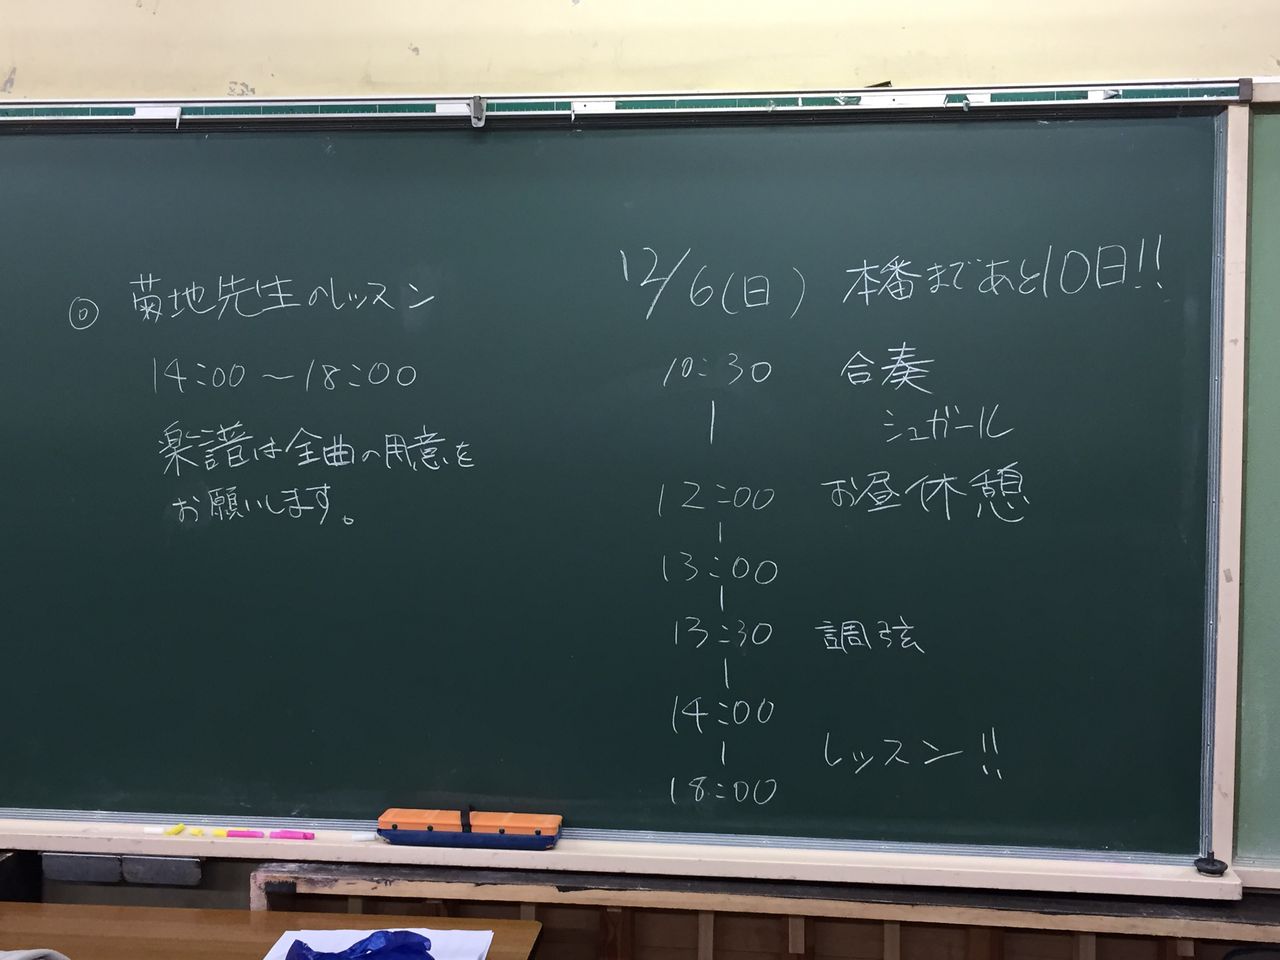 ◎ 菊地先生のレッスン
14:00〜18:00
楽譜は全曲の用意を
お願いします。
12/6(日) 本番まであと10日!!
10:30 合奏
| シュガール
12:00 お昼休憩
|
13:00
|
13:30 調弦
|
14:00
| レッスン!!
18:00